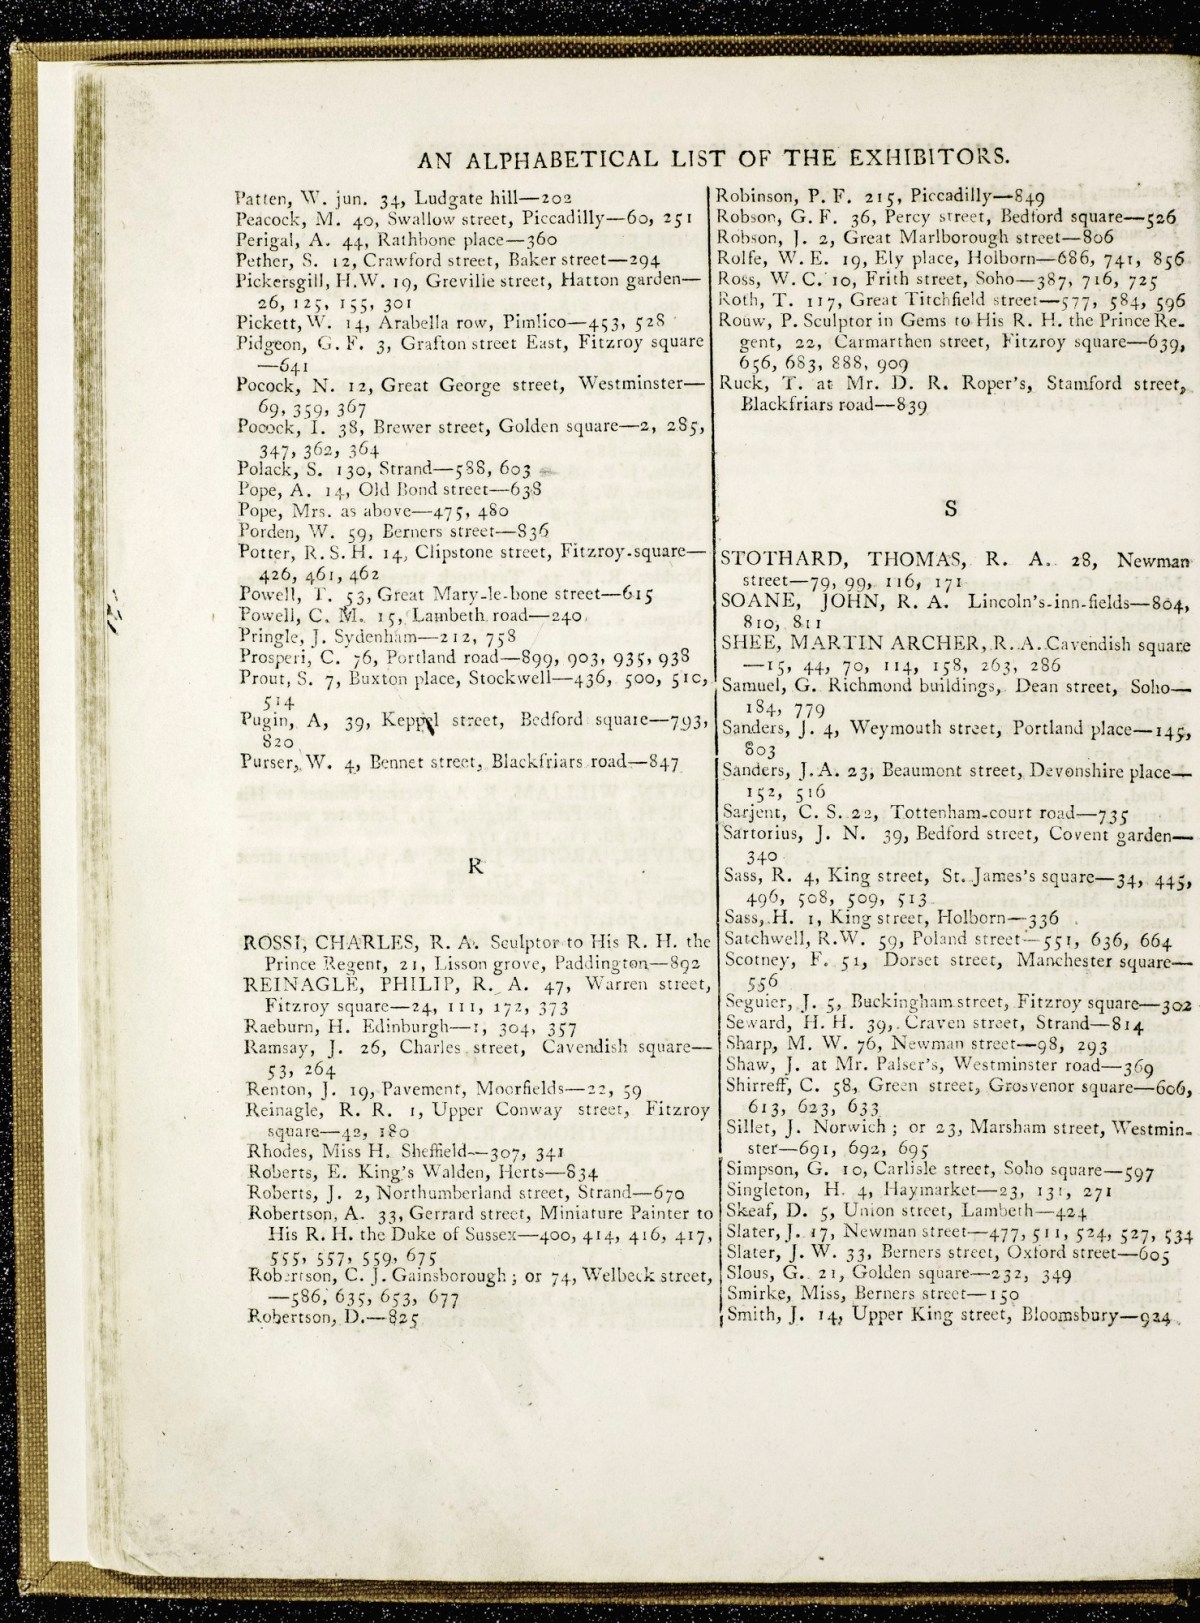 AN ALPHABETICAL LIST OF THE EXHIBITORS.
Patten, W. jun. 34, Ludgate hill—202
Peacock, M. 40, Swallow street, Piccadilly—60, 251
Perigal, A. 44, Rathbone place—360
Pether, S. 12, Crawford street, Baker street—294
Pickersgill, H.W. 19, Greville street, Hatton garden—
26, 125, 155, 301
Pickett, W. 14, Arabella row, Pimlico—453, 528
Pidgeon, G. F. 3, Grafton street East, Fitzroy square
—641
Pocock, N. 12, Great George street, Westminster—
69, 359, 367
Pocock, I. 38, Brewer street, Golden square—2, 285,
347, 362, 364
Polack, S. 130, Strand—588, 603
Pope, A. 14, Old Bond street—638
Pope, Mrs. as above—475, 480
Porden, W. 59, Berners street—836
Potter, R. S. H. 14, Clipstone street, Fitzroy-square—
426, 461, 462
Powell, T. 53, Great Mary-le-bone street—615
Powell, C. M. 15, Lambeth road—240
Pringle, J. Sydenham—212, 758
Prosperi, C. 76, Portland road—899, 903, 935, 938
Prout, S. 7, Buxton place, Stockwell—436, 500, 510,
514
Pugin, A, 39, Keppel street, Bedford square—793,
820
Purser, W. 4, Bennet street, Blackfriars road—847
R
ROSSI, CHARLES, R. A. Sculptor to His R. H. the
Prince Regent, 21, Lisson grove, Paddington—892
REINAGLE, PHILIP, R. A. 47, Warren street,
Fitzroy square—24, 111, 172, 373
Raeburn, H. Edinburgh—1, 304, 357
Ramsay, J. 26, Charles street, Cavendish square—
53, 264
Renton, J. 19, Pavement, Moorfields—22, 59
Reinagle, R. R. 1, Upper Conway street, Fitzroy
square—42, 180
Rhodes, Miss H. Sheffield—307, 341
Roberts, E. King's Walden, Herts—834
Roberts, J. 2, Northumberland street, Strand—670
Robertson, A. 33, Gerrard street, Miniature Painter to
His R. H. the Duke of Sussex—400, 414, 416, 417,
555, 557, 559, 675
Robertson, C. J. Gainsborough; or 74, Welbeck street,
—586, 635, 653, 677
Robertson, D.—825
Robinson, P. F. 215, Piccadilly—849
Robson, G. F. 36, Percy street, Bedford square—526
Robson, J. 2, Great Marlborough street—806
Rolfe, W. E. 19, Ely place, Holborn—686, 741, 856
Ross, W. C. 10, Frith street, Soho—387, 716, 725
Roth, T. 117, Great Titchfield street—577, 584, 596
Rouw, P. Sculptor in Gems to His R. H. the Prince Re-
gent, 22, Carmarthen street, Fitzroy square—639,
656, 683, 888, 909
Ruck, T. at Mr. D. R. Roper's, Stamford street,
Blackfriars road—839
S
STOTHARD, THOMAS, R. A. 28, Newman
street—79, 99, 116, 171
SOANE, JOHN, R. A. Lincoln's-inn-fields—804,
810, 811
SHEE, MARTIN ARCHER, R. A. Cavendish square
—15, 44, 70, 114, 158, 263, 286
Samuel, G. Richmond buildings, Dean street, Soho—
184, 779
Sanders, J. 4, Weymouth street, Portland place—145,
803
Sanders, J. A. 23, Beaumont street, Devonshire place—
152, 516
Sarjent, C. S. 22, Tottenham-court road—735
Sartorius, J. N. 39, Bedford street, Covent garden—
340
Sass, R. 4, King street, St. James's square—34, 445,
496, 508, 509, 513
Sass, H. 1, King street, Holborn—336
Satchwell, R.W. 59, Poland street—551, 636, 664
Scotney, F. 51, Dorset street, Manchester square—
556
Seguier, J. 5, Buckingham street, Fitzroy square—302
Seward, H. H. 39, Craven street, Strand—814
Sharp, M. W. 76, Newman street—98, 293
Shaw, J. at Mr. Palser's, Westminster road—369
Shirreff, C. 58, Green street, Grosvenor square—606,
613, 623, 633
Sillet, J. Norwich; or 23, Marsham street, Westmin-
ster—691, 692, 695
Simpson, G. 10, Carlisle street, Soho square—597
Singleton, H. 4, Haymarket—23, 131, 271
Skeaf, D. 5, Union street, Lambeth—424
Slater, J. 17, Newman street—477, 511, 524, 527, 534
Slater, J. W. 33, Berners street, Oxford street—605
Slous, G. 21, Golden square—232, 349
Smirke, Miss, Berners street—150
Smith, J. 14, Upper King street, Bloomsbury—924